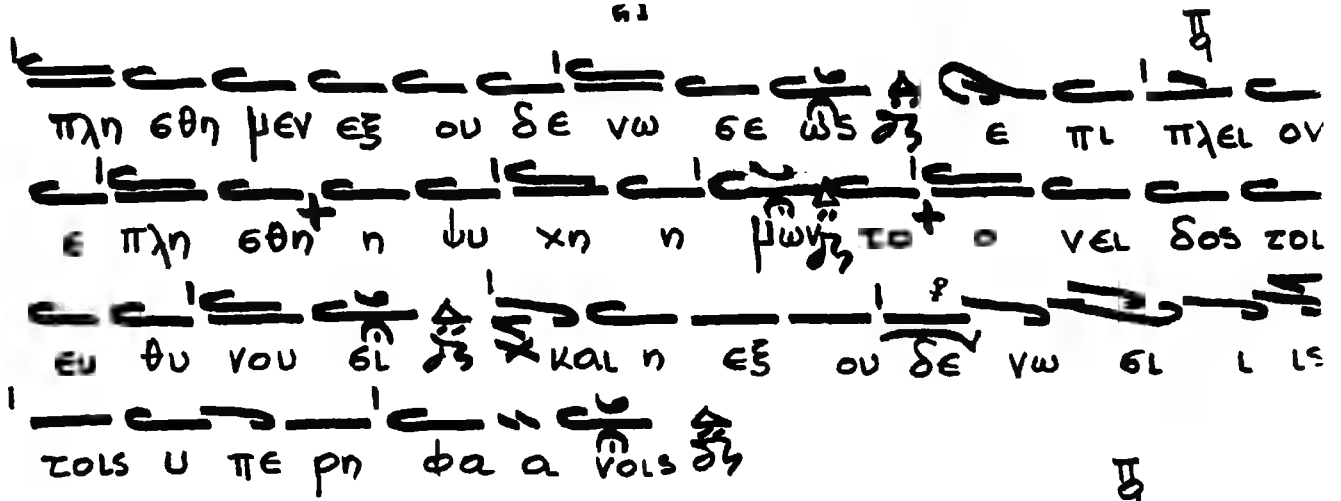 πλη σθη μεν εξ ου δε νω σε ως ε πι πλει ον
ε πλη σθη η ψυ χη η μων το ο νει δος τοι
ευ θυ νου σι και η εξ ου δε νω σι ι ις
τοις υ πε ρη φα α νοις